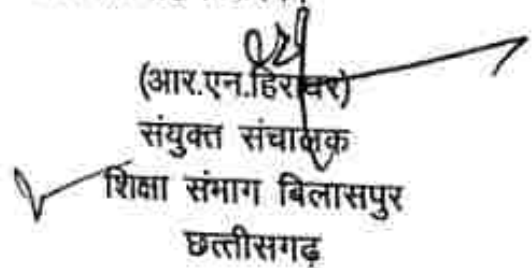 (आर.एन.हिराधर)
संयुक्त संचालक
शिक्षा संभाग बिलासपुर
छत्तीसगढ़